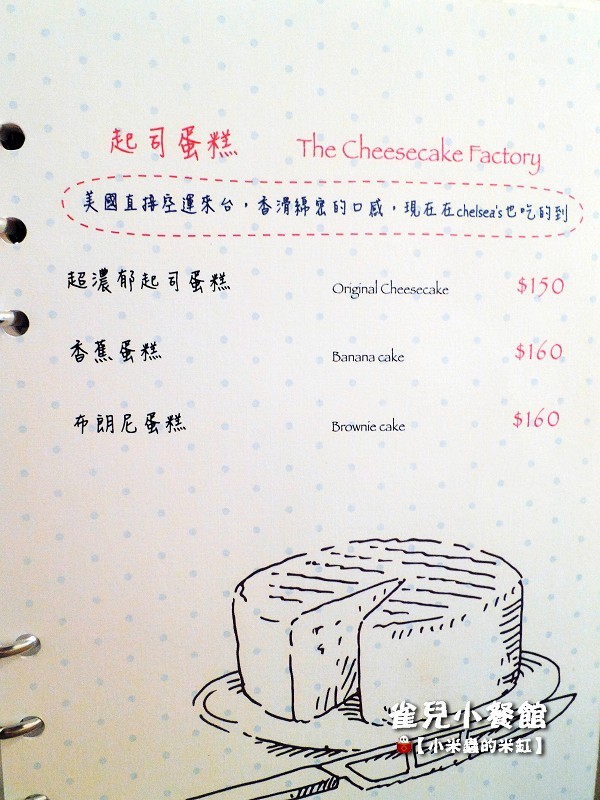 起司蛋糕 The Cheesecake Factory
美國直接空運來台，香滑綿密的口感，現在在chelsea's也吃的到
超濃郁起司蛋糕 Original Cheesecake $150
香蕉蛋糕 Banana cake $160
布朗尼蛋糕 Brownie cake $160
雀兒小餐館
【小米蟲的米缸】